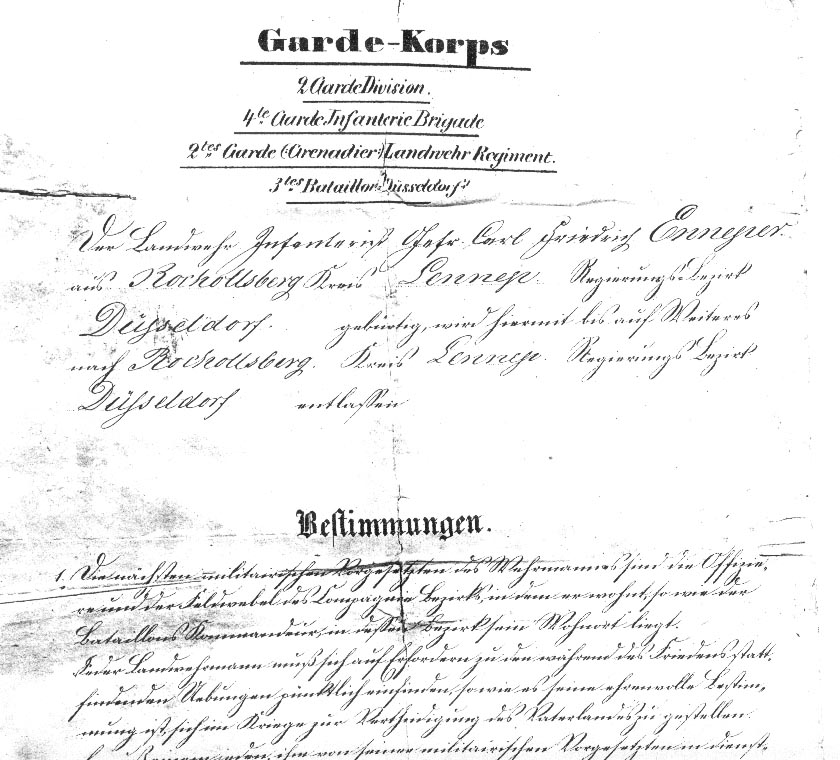 Garde-Korps
2 Garde Division.
4te Garde Infanterie Brigade
2tes Garde (Grenadier) Landwehr Regiment.
3tes Bataillon Düsseldorf
Der Landwehr Infanterist Gefr. Carl Friedrich Ennepier
aus Rochollsberg Kreis Lennep. Regierungs Bezirk
Düsseldorf. gebürtig, wird hiermit bis auf Weiteres
nach Rochollsberg. Kreis Lennep. Regierungs Bezirk
Düsseldorf entlassen
Bestimmungen.
1. Die nächsten militairischen Vorgesetzten des Wehrmannes sind die Offizie-
re und der Feldwebel des Compagnie Bezirks, in dem er wohnt, so wie der
Bataillons Kommandeur, in dessen Bezirk sein Wohnort liegt.
Jeder Landwehrmann muß sich auf Erfordern zu den während des Friedens statt-
findenden Uebungen pünktlich einfinden, so wie es seine ehrenvolle Bestim-
mung ist, sich im Kriege zur Vertheidigung des Vaterlandes zu gestellen.
ihm von seinen militairischen Vorgesetzten in dienst-